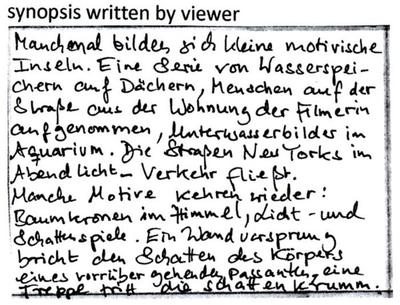 synopsis written by viewer
Manchmal bilden sich kleine motivische
Inseln. Eine Serie von Wasserspei-
chern auf Dächern, Menschen auf der
Straße aus der Wohnung der Filmerin
aufgenommen, Unterwasserbilder im
Aquarium. Die Straßen New Yorks im
Abendlicht – Verkehr fließt.
Manche Motive kehren wieder:
Baumkronen im Himmel, Licht- und
Schattenspiele. Ein Wandvorsprung
bricht den Schatten des Körpers
eines vorrüber gehenden Passanten, eine
Treppe tritt die Schatten krumm.